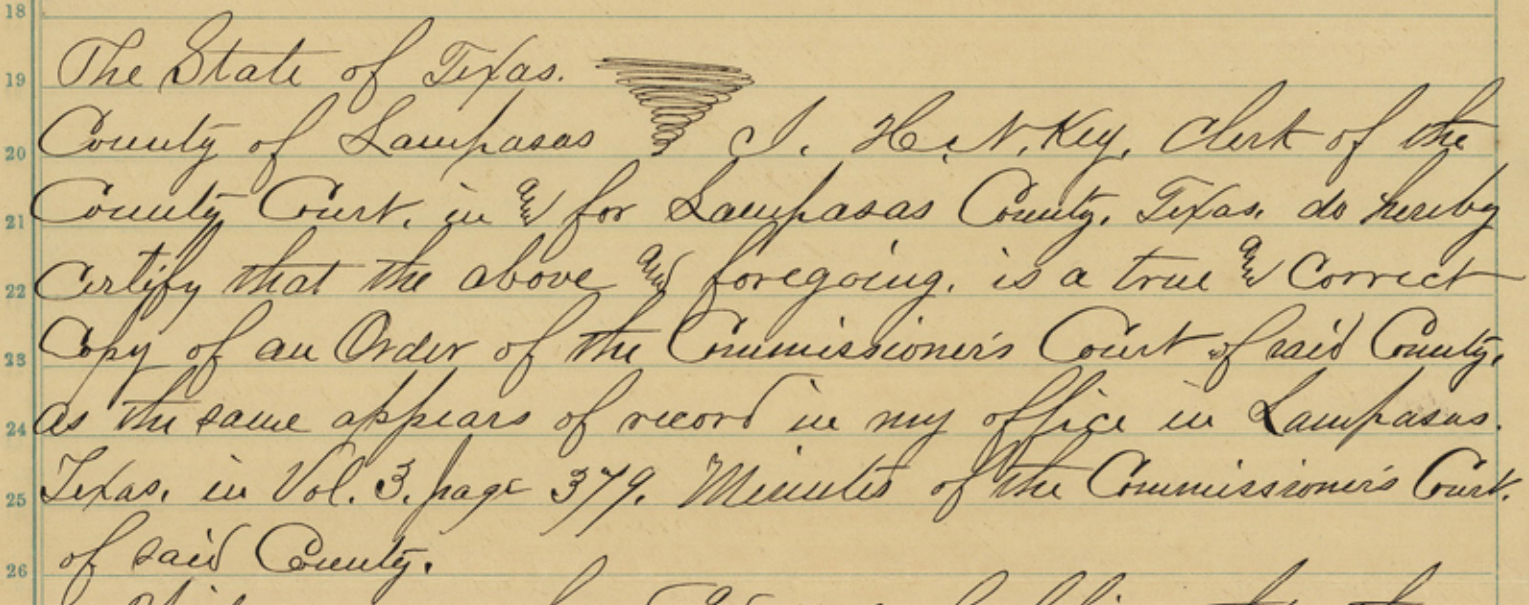 18
The State of Texas.
19
County of Lampasas I. H. N. Key, Clerk of the
20
County Court, in and for Lampasas County, Texas, do hereby
21
Certify that the above and foregoing, is a true and Correct
22
Copy of an Order of the Commissioner's Court of said County,
23
as the same appears of record in my office in Lampasas.
24
Texas, in Vol. 3, page 379, Minutes of the Commissioner's Court.
25
of said County.
26